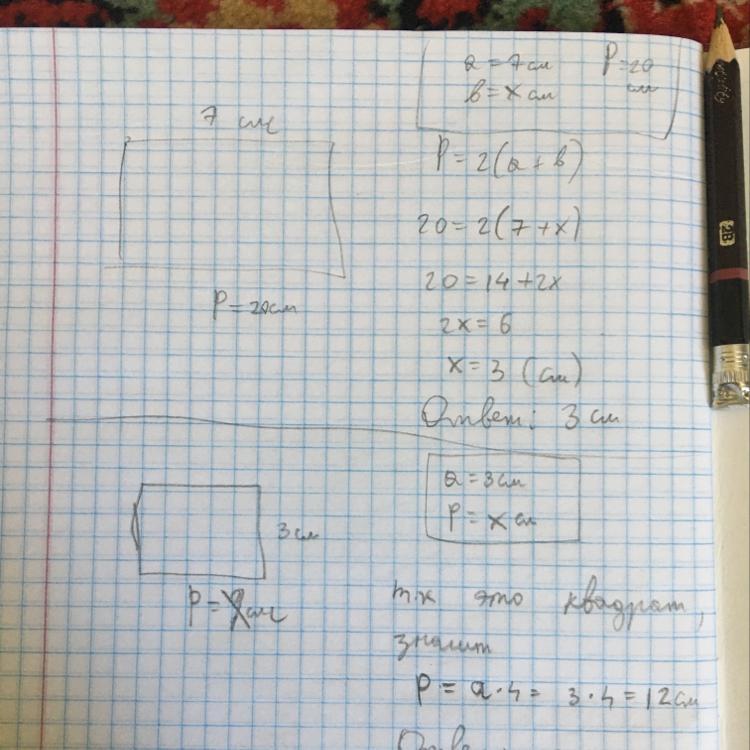 a = 7 см P = 20 см
b = x см
7 см
P = 2(a + b)
20 = 2(7 + x)
20 = 14 + 2x
P = 20см
2x = 6
x = 3 (см)
Ответ: 3 см
a = 3 см
P = x см
3 см
P = x см
т.к это квадрат,
значит
P = a · 4 = 3 · 4 = 12 см
2B